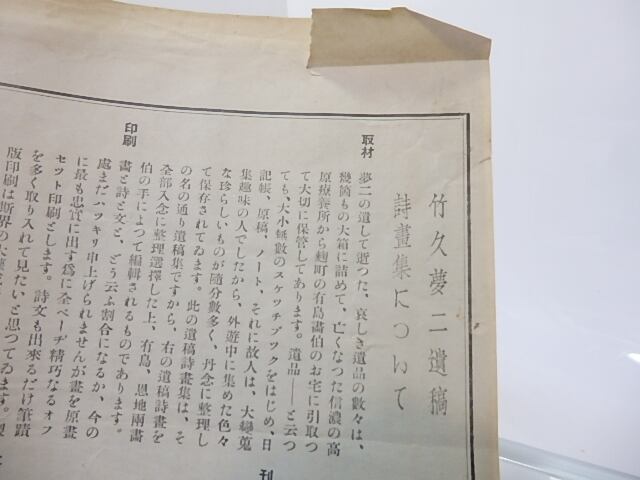 竹久夢二遺稿
詩畫集について
取材
夢二の遺して逝つた、哀しき遺品の數々は、
幾箇もの大箱に詰めて、亡くなつた信濃の高
原療養所から麹町の有島畫伯のお宅に引取つ
て大切に保管してあります。遺品――と云つ
ても、大小無數のスケツチブツクをはじめ、日
記帳、原稿、ノート、それに故人は、大變蒐
集趣味の人でしたから、外遊中に集めた色々
な珍らしいものが隨分數多く、丹念に整理し
て保存されてゐます。此の遺稿詩畫集は、そ
の名の通り遺稿集ですから、右の遺稿詩畫を
全部入念に整理選擇した上、有島、恩地兩畫
伯の手によつて編輯されるものであります。
印刷
畫と詩と文と、どう云ふ割合になるか、今の
處まだハツキリ申上げられませんが畫を原畫
に最も忠實に出す爲に全ページ精巧なるオフ
セツト印刷とします。詩文も出來るだけ筆蹟
を多く取り入れて見たいと思つてゐます。製
版印刷は斯界の
刊